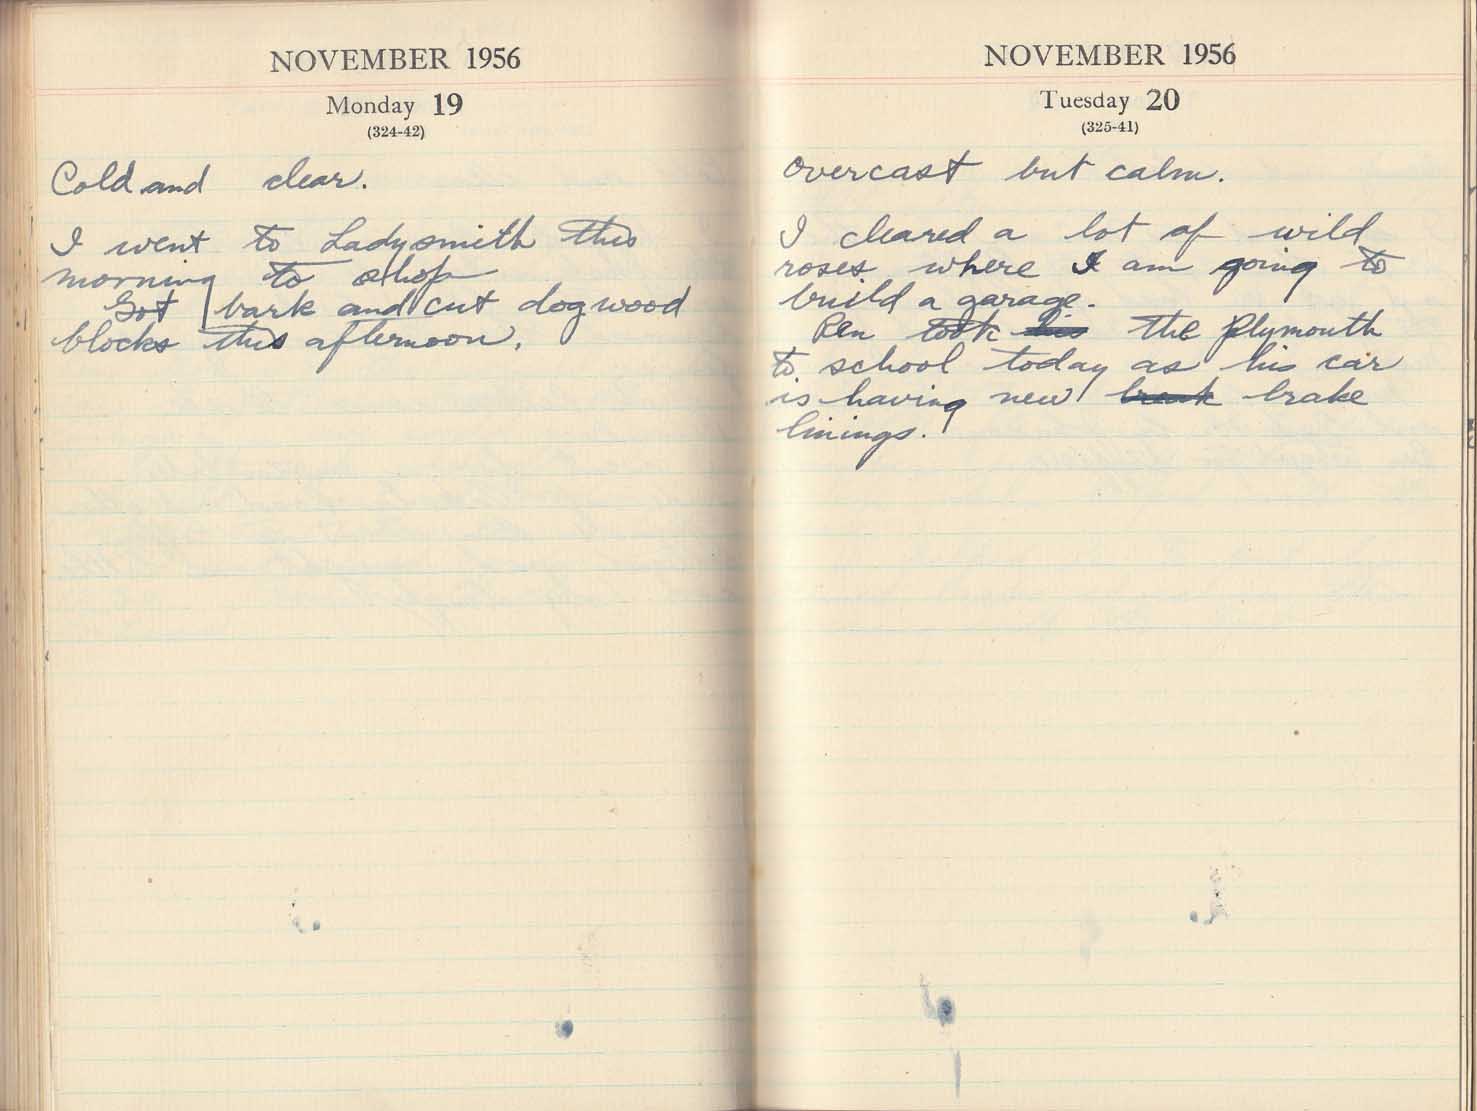 NOVEMBER 1956
Monday 19
(324-42)
Cold and clear.
I went to Ladysmith this
morning to shop
Got bark and cut dogwood
blocks this afternoon.
NOVEMBER 1956
Tuesday 20
(325-41)
Overcast but calm.
I cleared a lot of wild
roses where I am going to
build a garage.
Ren took his the Plymouth
to school today as his car
is having new break brake
linings.